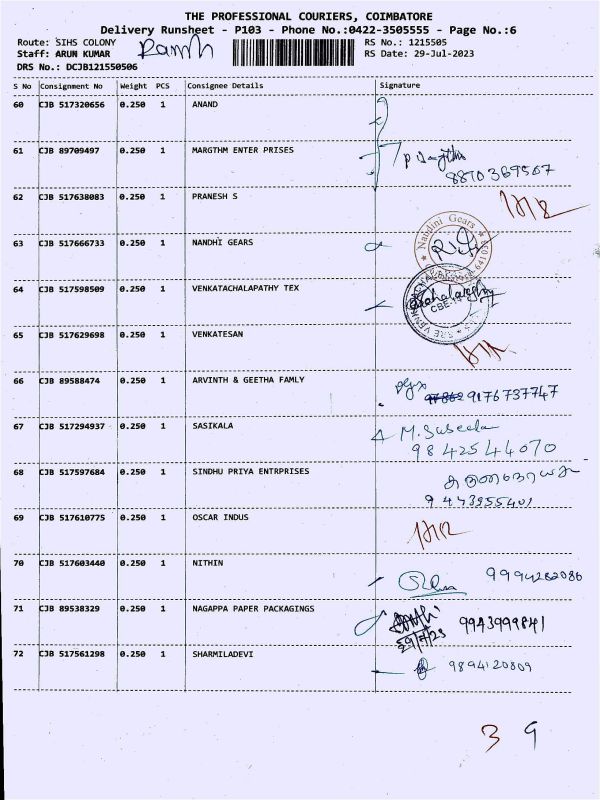 THE PROFESSIONAL COURIERS, COIMBATORE
Delivery Runsheet - P103 - Phone No.:0422-3505555 - Page No.:6
Route: SIHS COLONY RS No.: 1215505
Staff: ARUN KUMAR RS Date: 29-Jul-2023
DRS No.: DCJB121550506
S No Consignment No Weight PCS Consignee Details Signature
60 CJB 517320656 0.250 1 ANAND
61 CJB 89709497 0.250 1 MARGTHM ENTER PRISES
8870369567
62 CJB 517638083 0.250 1 PRANESH S
63 CJB 517666733 0.250 1 NANDHI GEARS
Nandini Gears
64 CJB 517598509 0.250 1 VENKATACHALAPATHY TEX
65 CJB 517629698 0.250 1 VENKATESAN
66 CJB 89588474 0.250 1 ARVINTH & GEETHA FAMLY
9176737747
67 CJB 517294937 0.250 1 SASIKALA M. Suseela
9842544070
68 CJB 517597684 0.250 1 SINDHU PRIYA ENTRPRISES
9443955401
69 CJB 517610775 0.250 1 OSCAR INDUS
70 CJB 517603440 0.250 1 NITHIN 9994282086
71 CJB 89538329 0.250 1 NAGAPPA PAPER PACKAGINGS 9943999841
29/7/23
72 CJB 517561298 0.250 1 SHARMILADEVI 9894120809
3 9